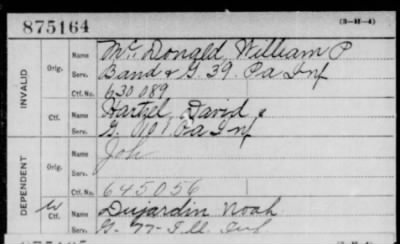 875164 (3-H-4)
INVALID
Orig. Name Mc Donald, William P
Serv. Band & G. 39. Pa Inf
Ctf. No. 630 089
Ctf. Name Hartzel, David
Serv. G. 101, Pa Inf
DEPENDENT
Orig. Name Joh
Serv.
Ctf. No. 645056
W Ctf. Name Dujardin Noah
Serv. G- 77- Ill. Inf